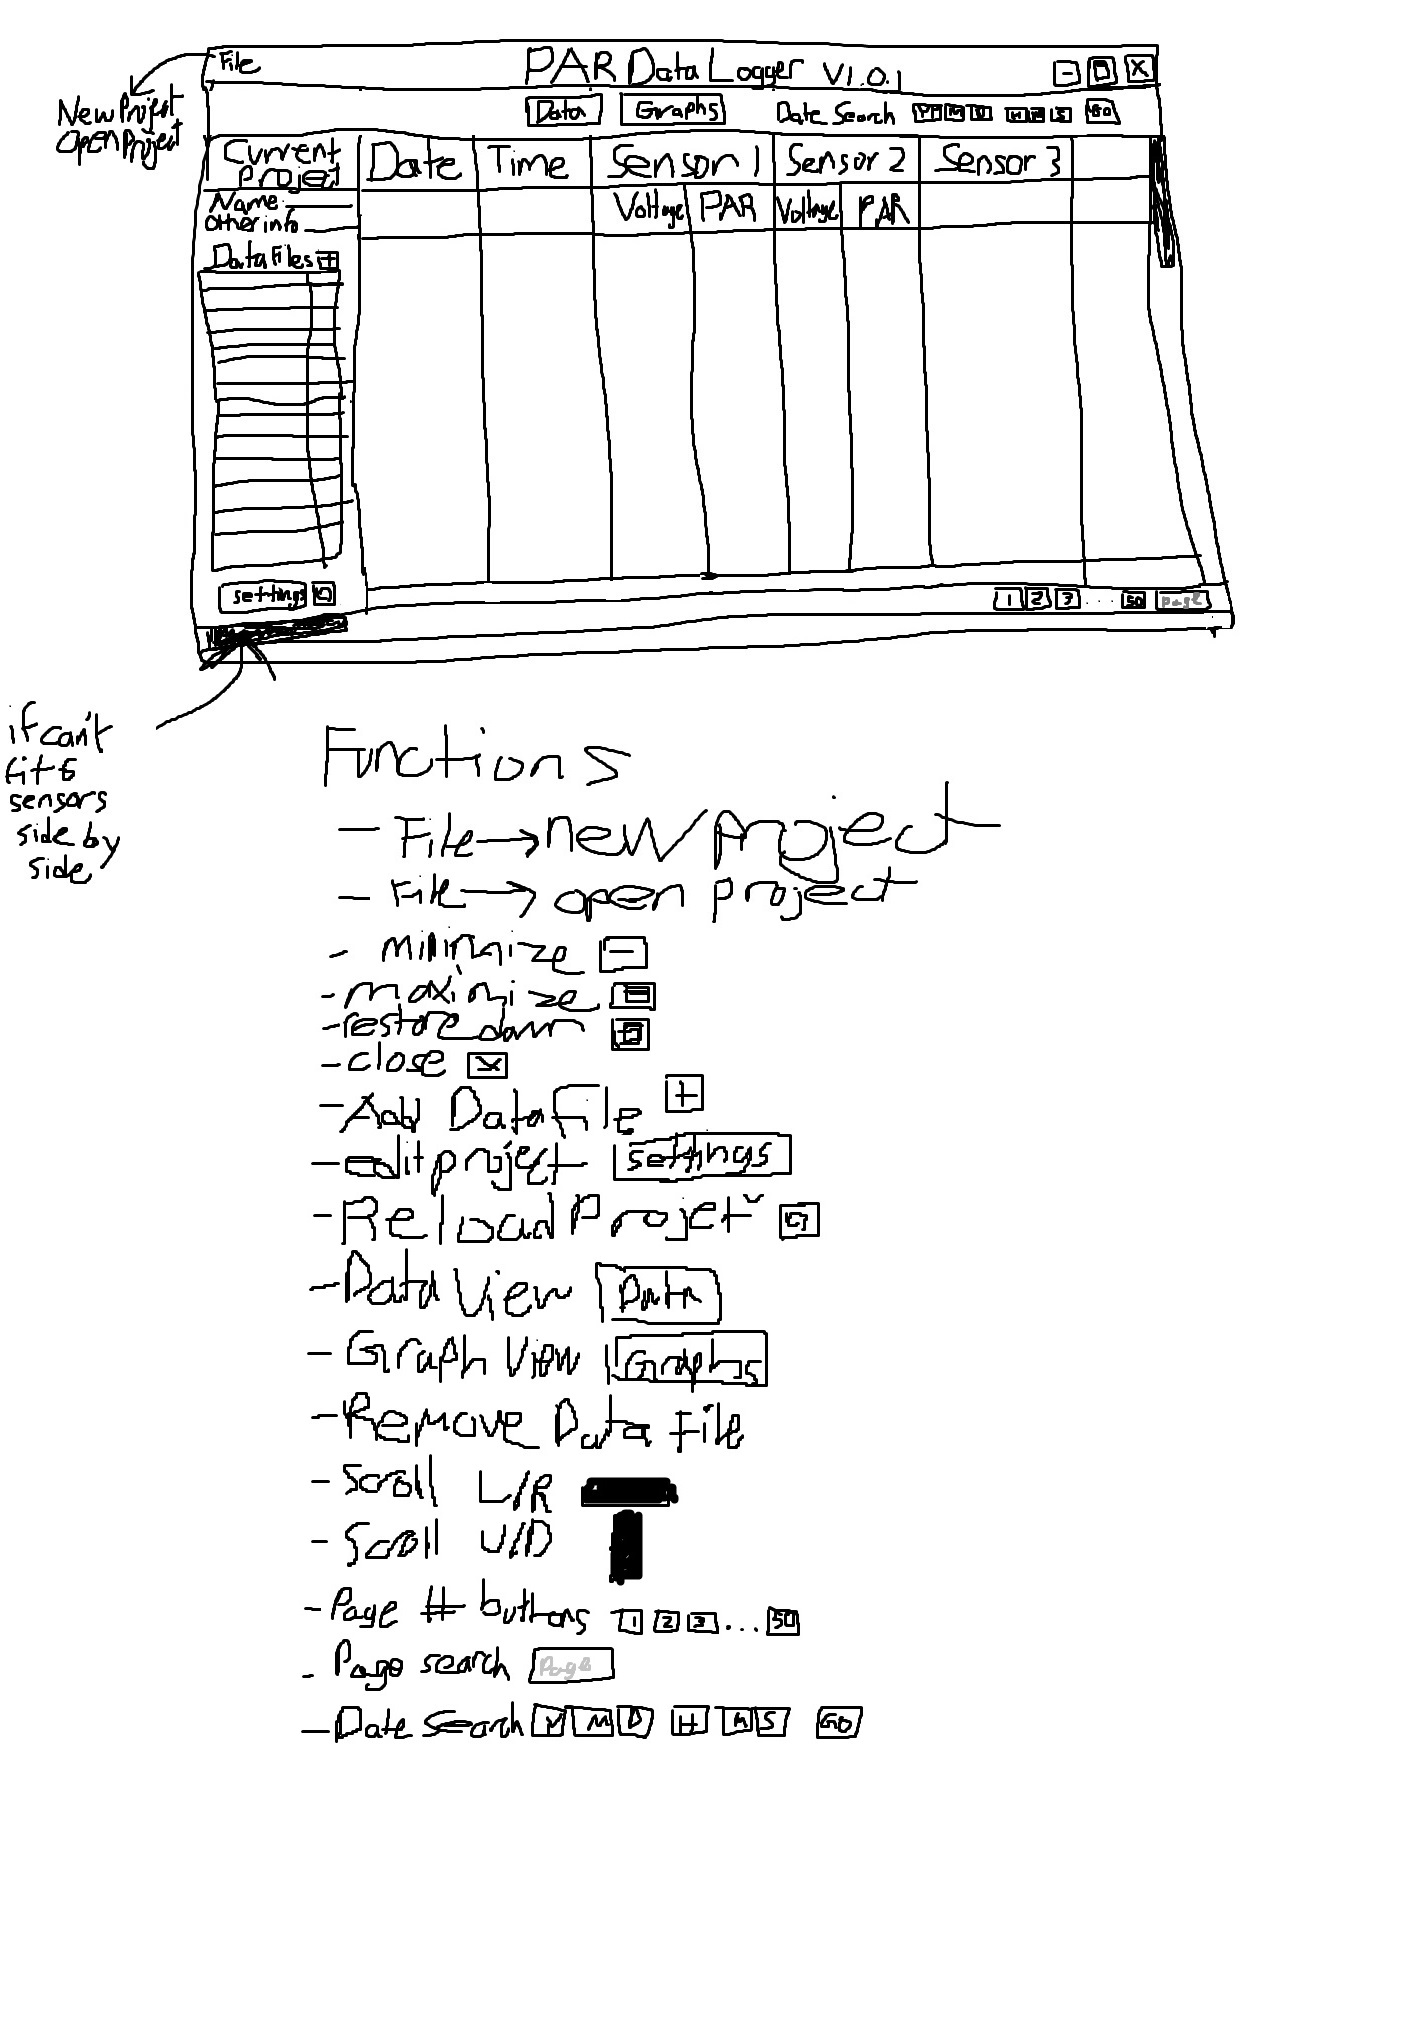 File
PAR Data Logger V1.0.1
- X
New Project
open Project
Data Graphs Date Search Y M D H M S GO
Current
Project
Date Time Sensor 1 Sensor 2 Sensor 3
Name
other info
Voltage PAR Voltage PAR
Data Files +
settings
1 2 3 .... 50 Page
if can't
fit 6
sensors
side by
side
Functions
- File → new Project
- File → open project
- minimize -
- maximize
- restore down
- close X
- Add Data File +
- edit project settings
- Reload Projet
- Data View Data
- Graph View Graphs
- Remove Data File
- Scroll L/R
- Scroll U/D
- Page # buttons 1 2 3 ... 50
- Page search Page
- Date Search Y M D H M S GO